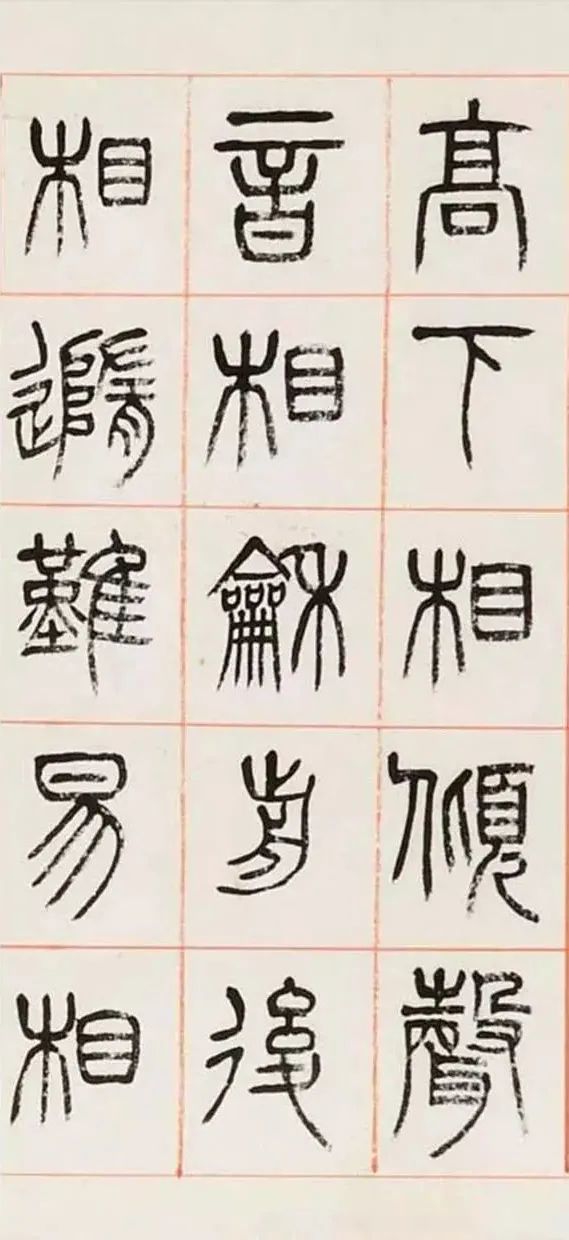 高下相傾聲
音相龢前後
相隨難易相